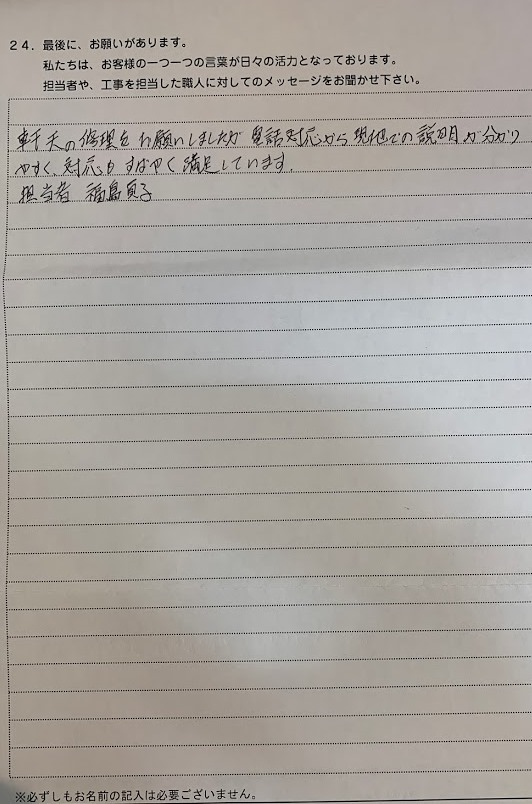 24．最後に、お願いがあります。
私たちは、お客様の一つ一つの言葉が日々の活力となっております。
担当者や、工事を担当した職人に対してのメッセージをお聞かせ下さい。
軒天の修理をお願いしましたが電話対応から現地での説明が分かり
やすく、対応もすばやく満足しています。
担当者 福島貞子
※必ずしもお名前の記入は必要ございません。